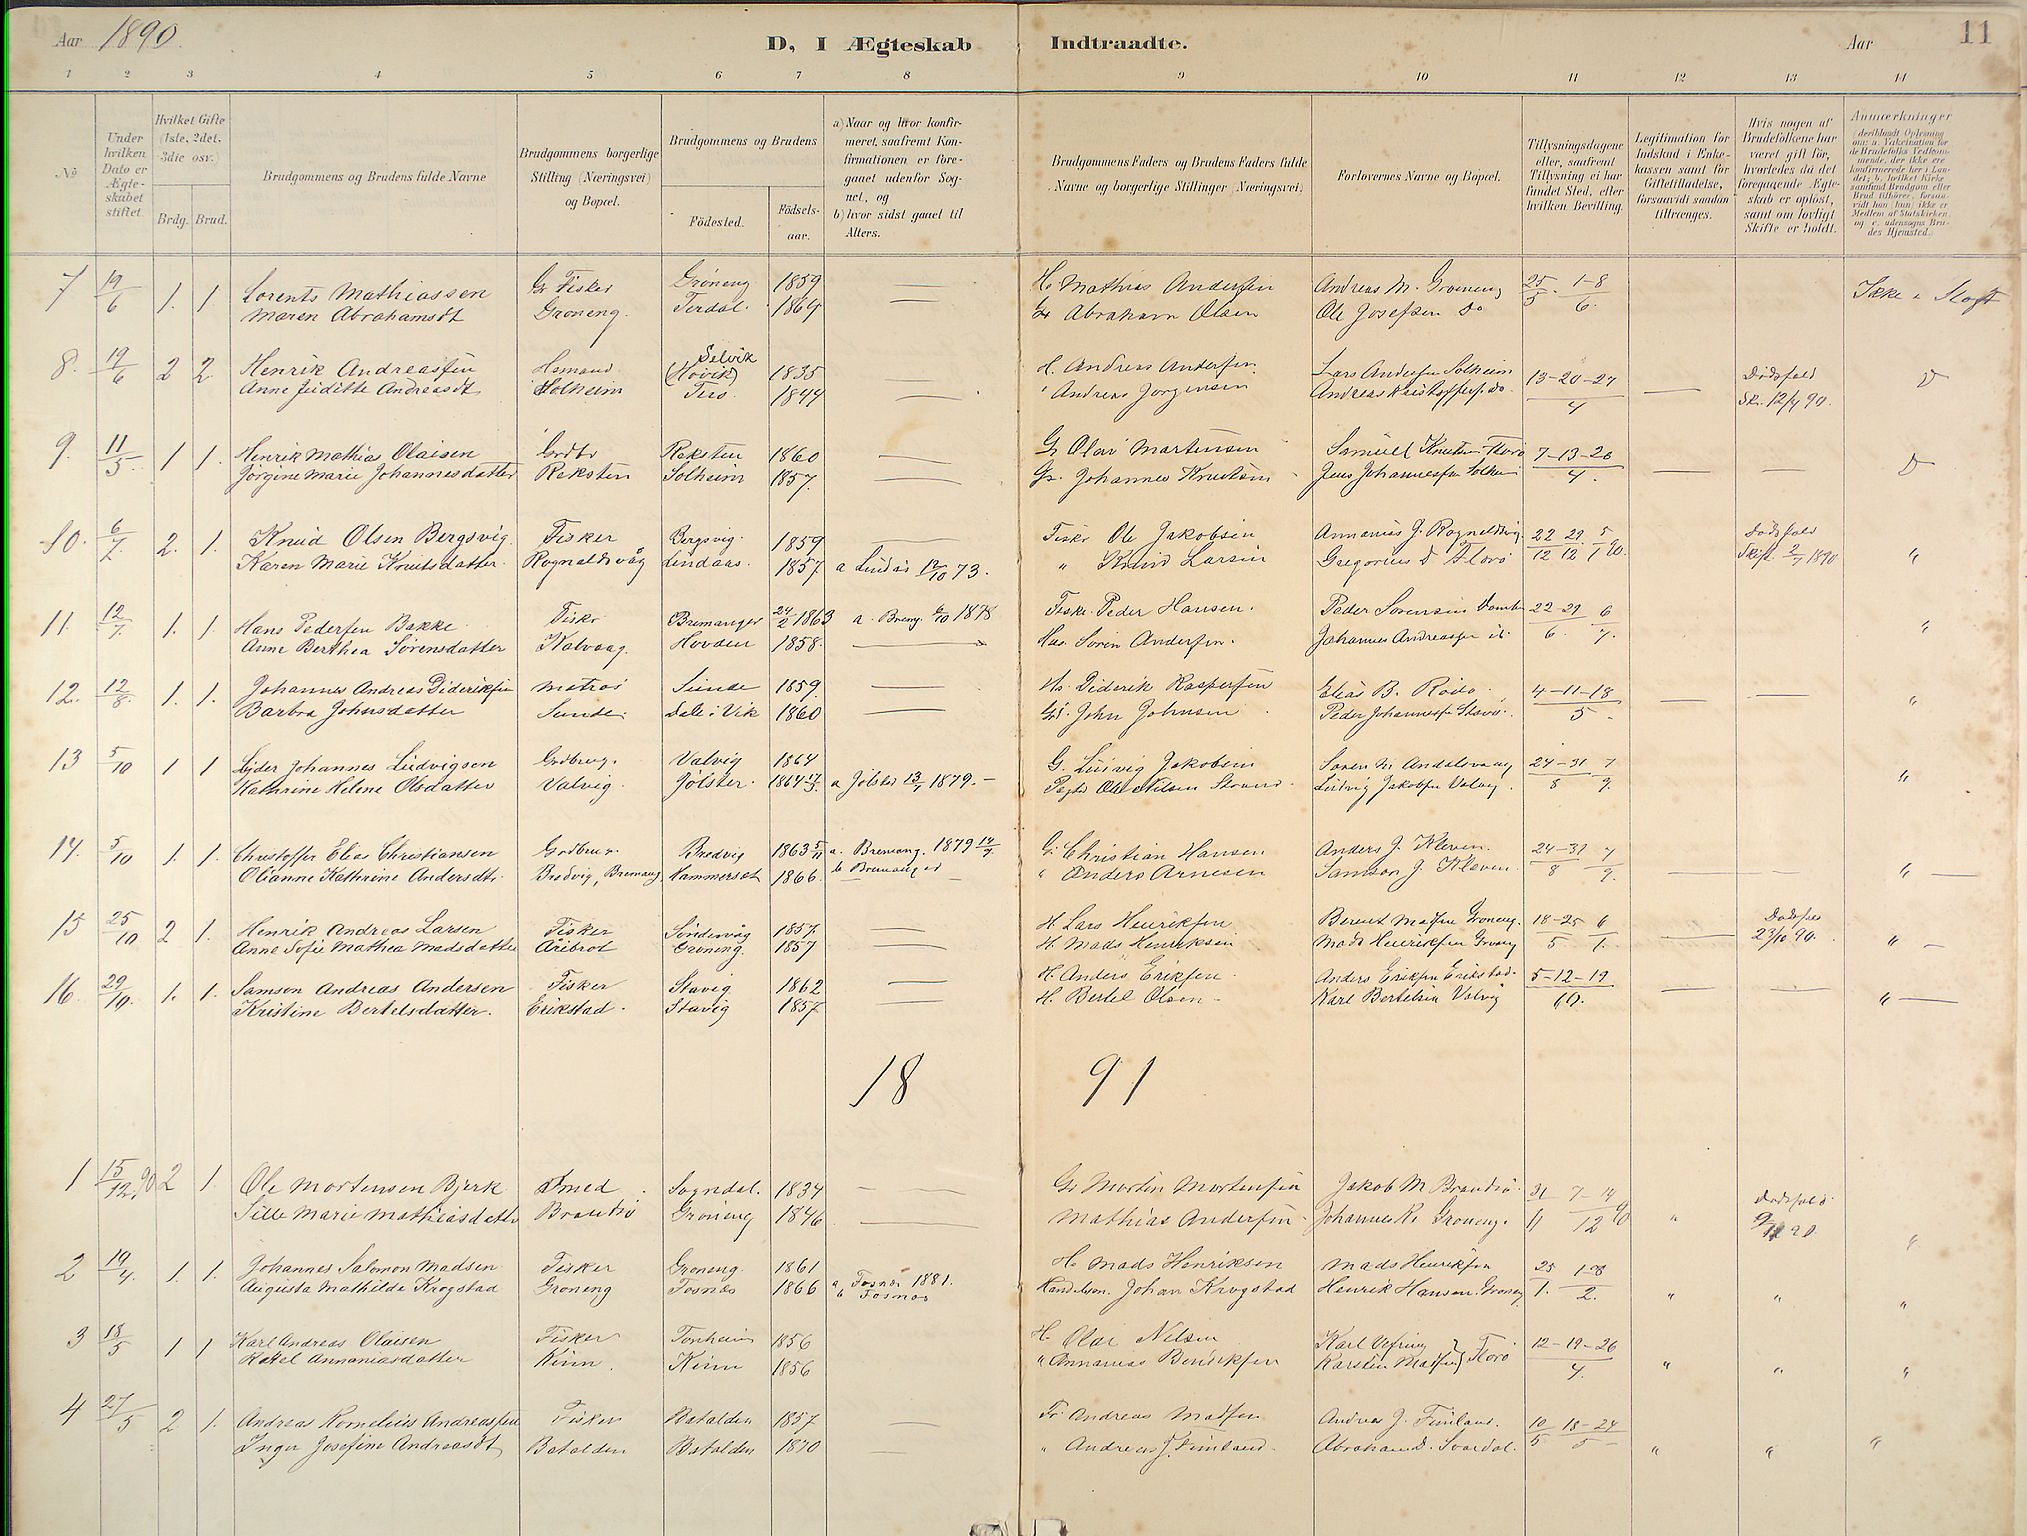 Aar 1890.
D, I Ægteskab Indtraadte.
Aar
11
1 2 3 4 5 6 7 8 9 10 11 12 13 14
No
Under hvilken Dato er Ægteskabet stiftet.
Hvilket Gifte (1ste, 2det, 3die osv.)
Brdg. Brud.
Brudgommens og Brudens fulde Navne
Brudgommens borgerlige Stilling (Næringsvei) og Bopæl.
Brudgommens og Brudens
Fødested. Fødselsaar.
a) Naar og hvor konfirmeret, saafremt Konfirmationen er foregaaet udenfor Sognet, og
b) hvor sidst gaaet til Alters.
Brudgommens Faders og Brudens Faders fulde Navne og borgerlige Stillinger (Næringsvei)
Forlovernes Navne og Bopæl.
Tillysningsdagene eller, saafremt Tillysning ei har fundet Sted, efter hvilken Bevilling.
Legitimation for Indskud i Enkekassen samt for Giftetilladelse, forsaavidt saadan tiltrænges.
Hvis nogen af Brudefolkene har været gift før, hvorledes da det foregaaende Ægteskab er opløst, samt om lovligt Skifte er holdt.
Anmærkninger
(deriblandt Oplysning om: a. Vakcination for de Brudefolks Vedkommende, der ikke ere konfirmerede her i Landet; b. hvilket Kirkesamfund Brudgom eller Brud tilhører, forsaavidt han (hun) ikke er Medlem af Statskirken, og c. udensogns Brudes Hjemsted.)
7 19/6 1. 1 Lorents Mathiassen Gr Fisker Grøneng 1859 — H. Mathias Andersen Andreas M. Groneng 25/5 - 1-8/6. Ikke i Slægt
Maren Abrahamsdt Groneng. Terdal. 1864 — Gr Abraham Olsen Ole Josefsen Do
8. 19/6 2 2 Henrik Andreassen Hsmand Selvik (Hovik) 1835 — H. Andreas Andersen Lars Andersen Solheim 13-20-27/4 — Dødsfald
Anne Juditte Andreasdt Solheim 1844 — " Andreas Jorgensen Andreas Kristoffers. do. Sk. 12/4 90.
9. 11/5. 1 1. Henrik Mathias Olaisen Grdbr Reksten 1860 — G. Olai Martensen Samuel Knutsen Florø 7-13-20/4. — —
Jørgine Marie Johannesdatter Reksten Solheim 1857. — Gr. Johannes Knutsen Jens Johannessen Solheim
10. 6/7. 2. 1. Knud Olsen Bergsvig. Fisker Bergsvig. 1859 — Fisker Ole Jakobsen Annanias J. Rognaldsvig 22/12 29/12 5/1 90. Dødsfald
Karen Marie Knutsdatter. Rognaldsvåg Lindaas. 1857 a Lindås 12/10 73. " Knud Larsen Gregorius D Florø Skift. 2/7 1890 "
11. 12/7. 1. 1. Hans Pedersen Bakke. Fisker Bremanger 24/2 1863 a. Bremg. 6/10 1878 Fisker Peder Hansen. Peder Sorensen 22-29/6. 6/7.
Anne Berthea Sørensdatter Kalvaag. Hovden 1858. — Hus. Soren Andersen. Johannes Andreassen "
12. 12/8. 1. 1. Johannes Andreas Dideriksen Matros Sunde 1859. — Hs. Diderik Kaspersen Elias B. 4-11-18/5 — —
Barbra Johnsdatter Sunde. Dale i Vik 1860 — Gr. John Johnsen Peder Johannessen "
13 5/10 1 1 Lyder Johannes Ludvigsen Grdbrug. Valvig 1864 G. Ludvig Jakobsen Soren M. 24-31/8 7/9.
Kathrine Helene Olsdatter Valvig. Jølster. 1864 a Jolster 13/7 1879. — Ole Nilsen Ludvig Jakobsen Valvig "
14. 5/10 1. 1. Christoffer Elias Christiansen Grdbrug. Bredvig 1863 5/11 a. Bremang. 1879 14/9. G. Christian Hansen Anders J. Kleven. 24-31/8 7/9.
Olianne Kathrine Andersdtr. Bredvig, Bremang. Hammersæt 1866. b Bremanger " Anders Arnesen Samson J. Kleven. — — " —
15 25/10 2 1. Henrik Andreas Larsen Fisker Sundsvåg 1857. — H. Lars Henriksen Berent Madsen Groneng. 18-25/5 6/1. Dødsfald
Anne Sofie Mathea Madsdatter Årebrot Groneng. 1857 — H. Mads Henriksen Mads Henriksen Groneng — 23/10 90. " —
16. 29/10. 1. 1. Samson Andreas Andersen Fisker Stavig 1862 — H. Anders Eriksen. Anders Eriksen Erikstad. 5-12-19/10. — —
Kristine Bertelsdatter. Erikstad. Stavig 1857 — H. Bertel Olsen — Karl Bertelsen Valvig " —
1891
1 15/12. 90 2 1. Ole Mortensen Bjerk Smed. Sogndal. 1834 — Gr Morten Mortensen Jakob M Brandsø. 31/11 7-14/12 90 Dødsfald
Sille Marie Mathiasdatter Brandsø Groneng 1846 — Mathias Andersen Johannes K. Groneng. " 90. "
2 19/4. 1. 1. Johannes Salomon Madsen Fisker Groneng. 1861 H. Mads Henriksen Mads Henriksen 25/1. 1-8/2.
Augusta Mathilde Krogstad Groneng Fosnæs 1866 a. Fosnæs 1881. b Fosnæs Handelsm. Johan Krogstad Henrik Hansen Groneng " " "
3 18/5 1 1 Karl Andreas Olaisen Fisker Tonheim 1856 H. Olai Nelsen Karl Vefring } Florø 12-19-26/4.
Rakel Annaniasdatter Kinn. Kinn 1856 " Annanias Bendiksen Karsten Madsen " " "
4 27/5 2 1. Andreas Kornelius Andreassen Fisker Batalden 1857 — Fr. Andreas Madsen Andreas J. Fimland. 10/5 - 18-24/5
Inger Josefine Andreasdt Batalden Batalden 1870 — " Andreas J. Fimland. Abraham D. Svardal. " " "